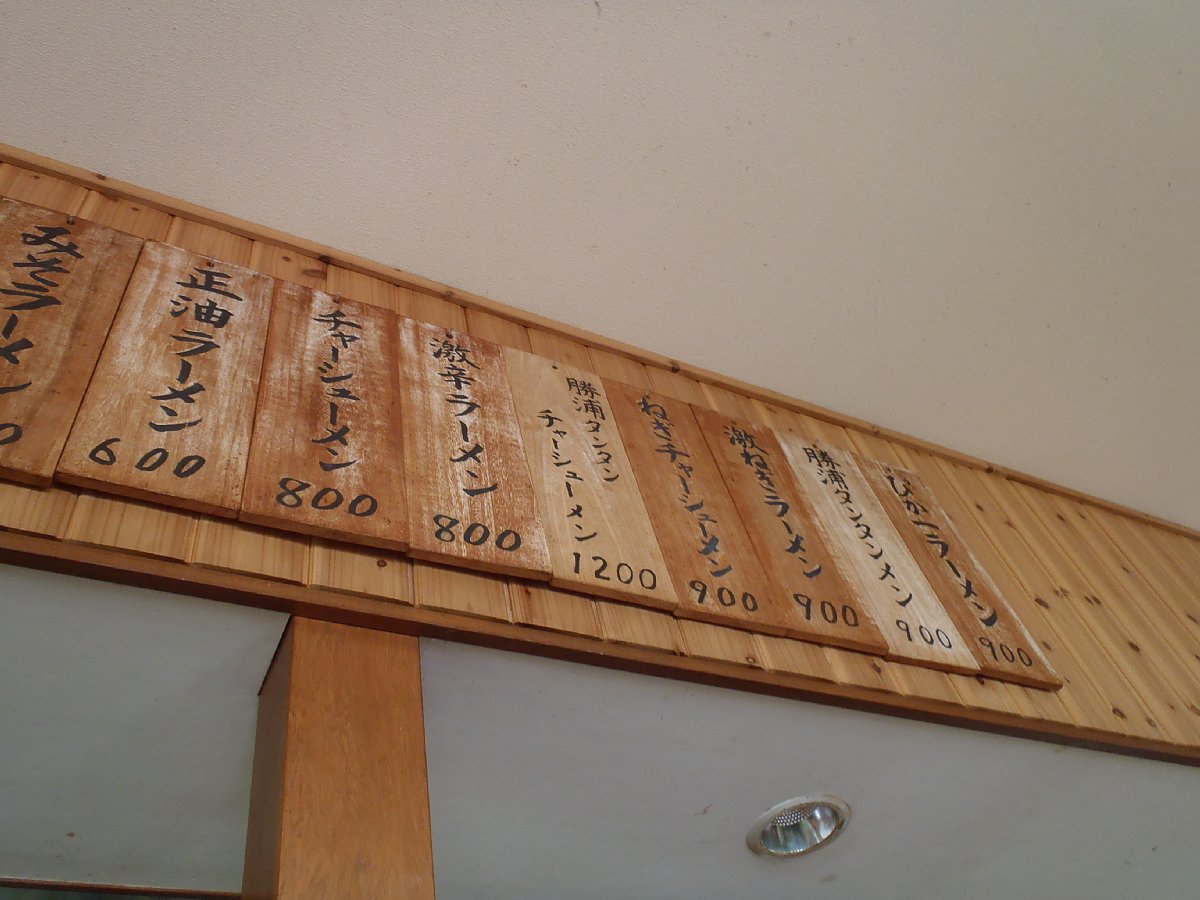 みそラーメン
0
正油ラーメン
600
チャーシューメン
800
激辛ラーメン
800
勝浦タンタン
チャーシューメン
1200
ねぎチャーシューメン
900
激ねぎラーメン
900
勝浦タンタンメン
900
ラーメン
900